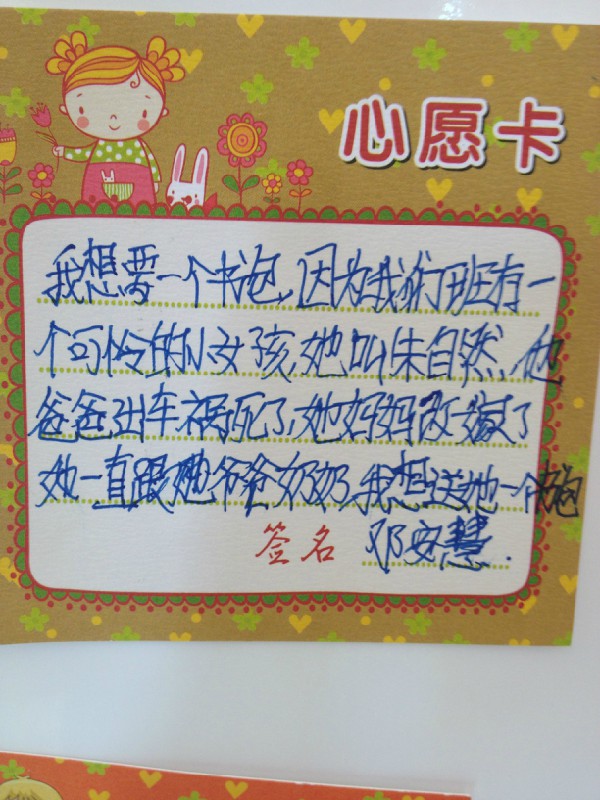 心愿卡
我想要一个书包,因为我们班有一
个可怜的小女孩,她叫朱自然,她
爸爸出车祸死了,她妈妈改嫁了
她一直跟她爷爷奶奶,我想送她一个书包
签名 邓安慧.